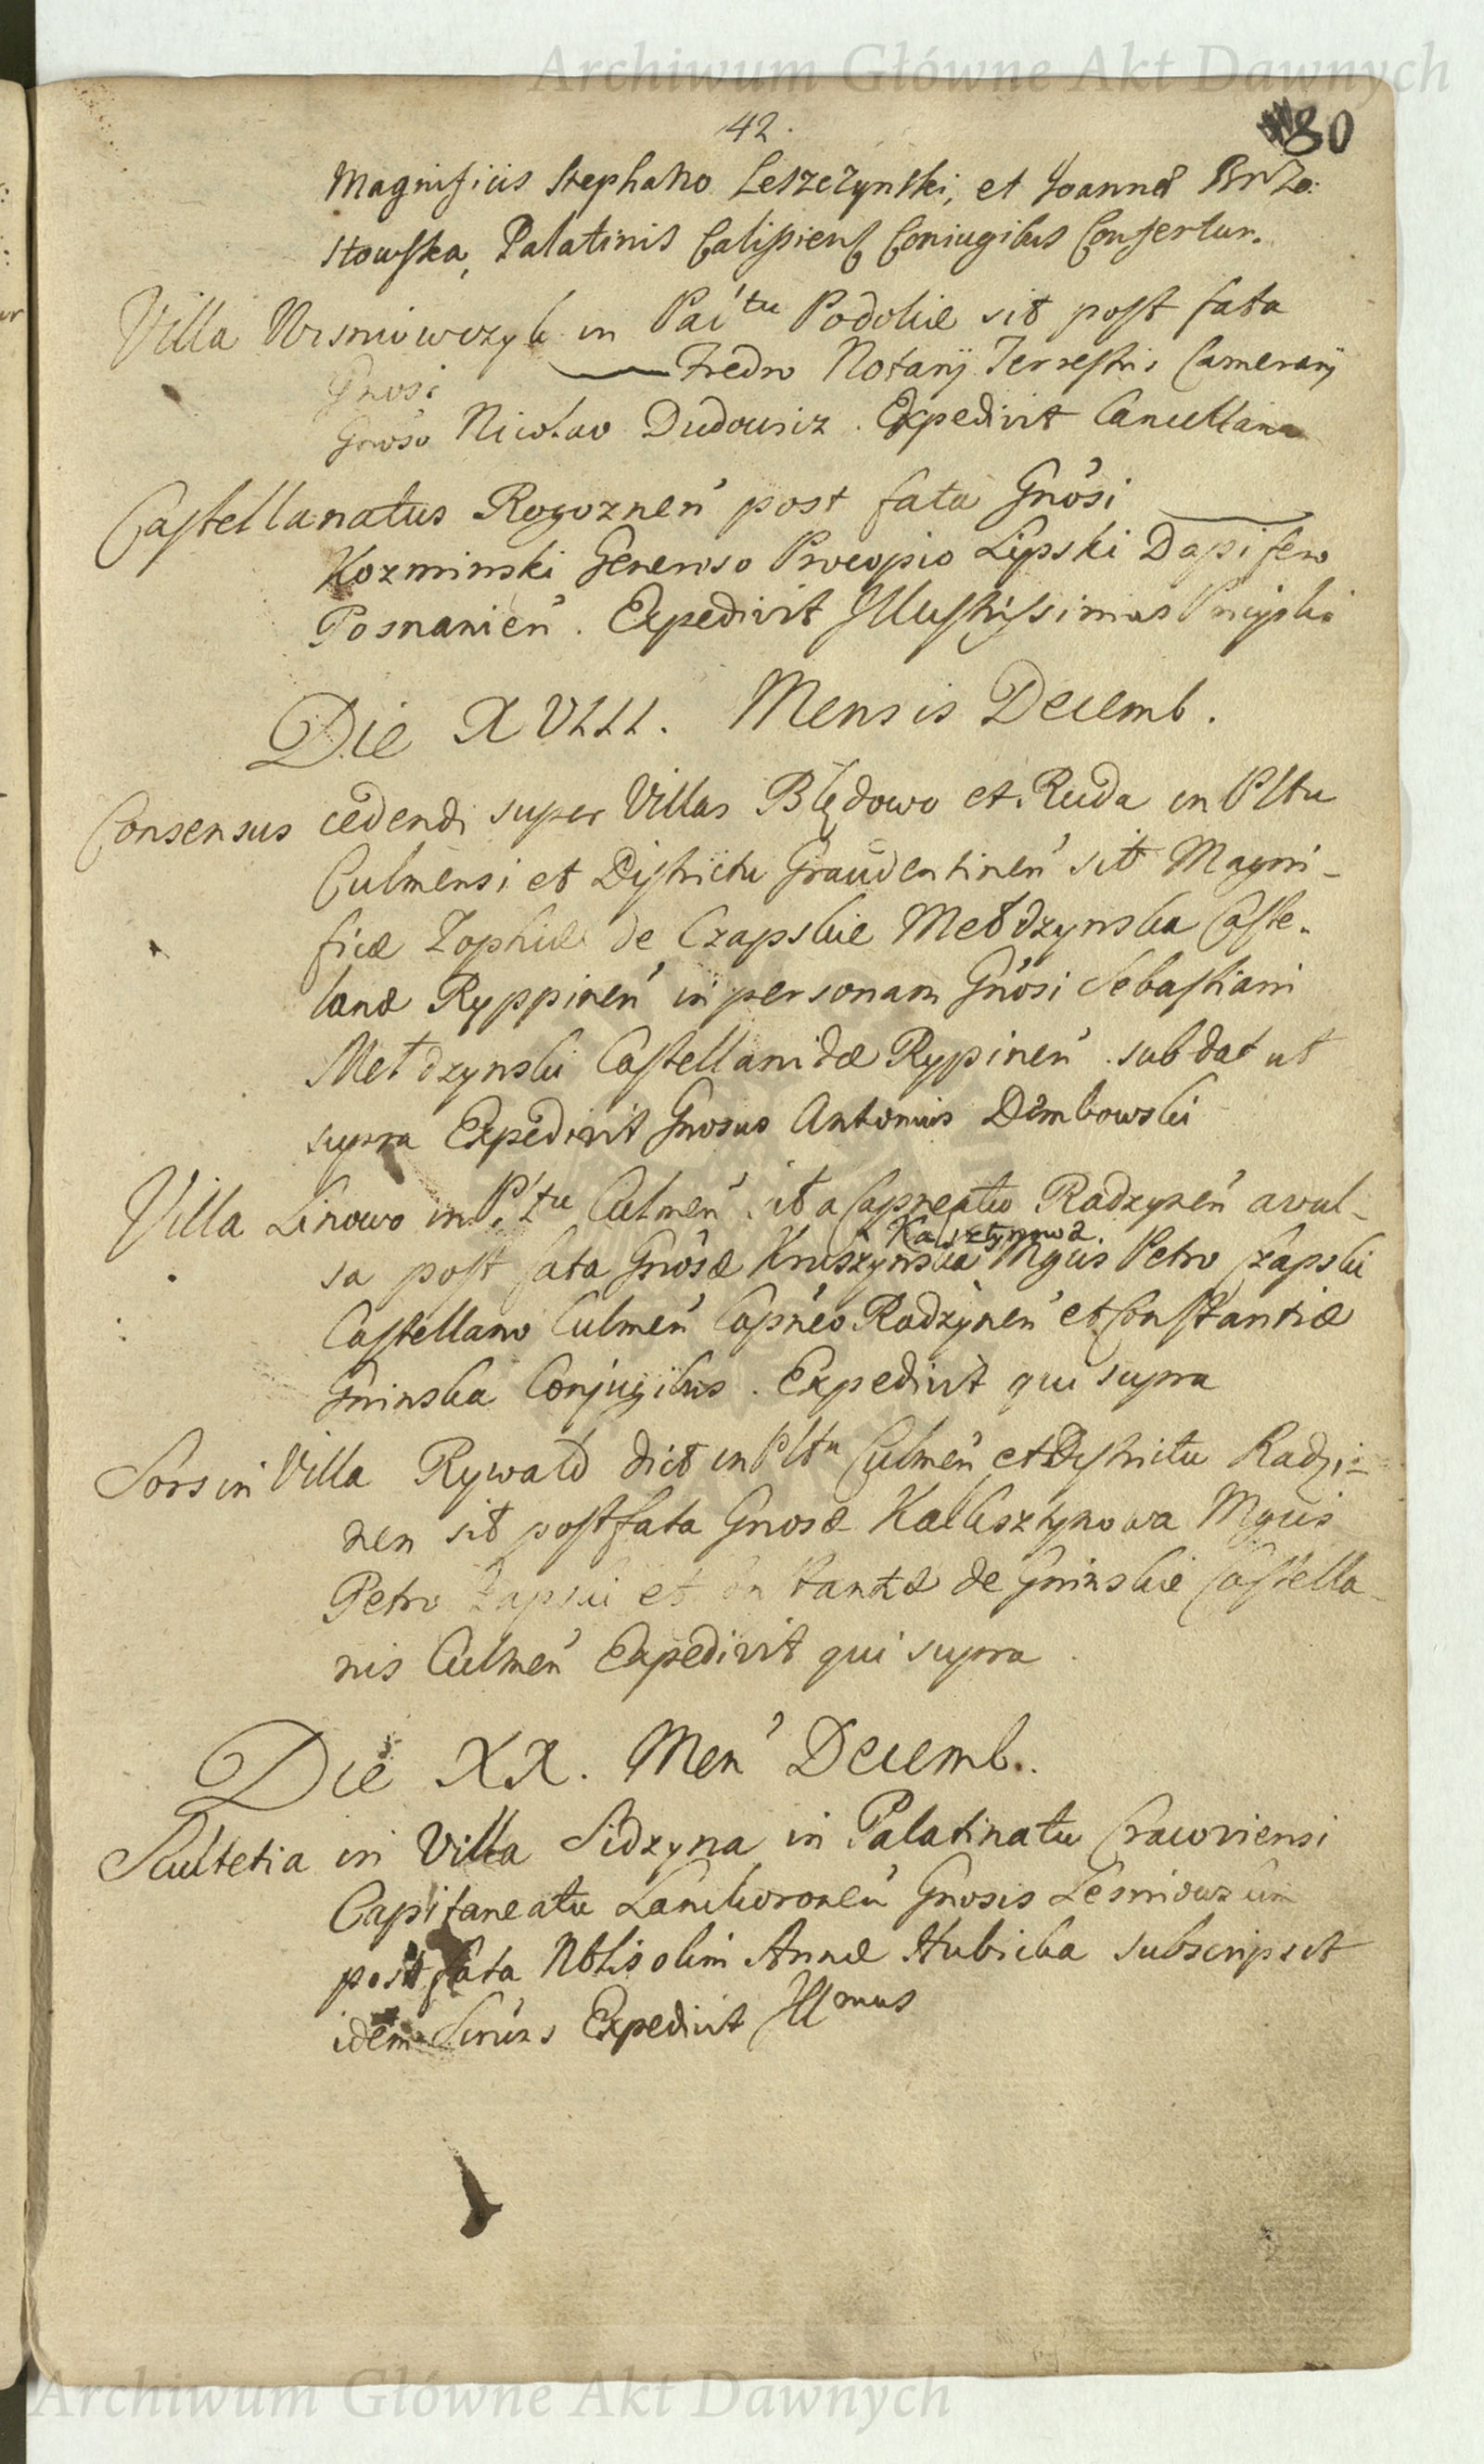 Archiwum Główne Akt Dawnych
42.
80
Magnificis Stephano Leszczynski, et Joannæ Brzo:
stowska, Palatinis Calissiens Coniugibus Confertur.
Villa Wisniowczyk in Pal'tu Podoliæ sit post fata
Gnosi Fredro Notarij Terrestris Camerarij
Gnoso Nicolao Dudowicz. Expedivit Cancellaria
Castellanatus Rogoznen' post fata Gnosi
Kozminski Generoso Procopio Lipski Dapifero
Posnanien'. Expedivit Illustrissimus
Die XVIII. Mensis Decemb.
Consensus cedendi super Villas Błędowo et Ruda in Pltu
Culmensi et Districtu Graudentinen' sit Magni-
ficæ Zophiæ de Czapskie Mełdzynska Caste-
lanæ Ryppinen' in personam Gnosi Sebastiani
Mełdzynski Castellanidæ Rypinen'. sub dat ut
supra Expedivit Gnosus Antonius Dembowski
Villa Linowo in P:ltu Culmen'. it a Capneatu Radzynen' avul-
Kalsztynowa.
sa post fata Gnosæ Kruszynska Mgcis Petro Czapski
Castellano Culmen' Capneo Radzynen' et Constantiæ
Gninska Conjugibus. Expedivit qui supra
Sors in Villa Rywałd dict in Pltu Culmen' et Districtu Radzi-
nen sit post fata Gnosæ Kalksztynowa Mgcis
Petro Czapski et Constantiæ de Gninskie Castella
nis Culmen' Expedivit qui supra
Die XX. Men' Decemb.
Scultetia in Villa Sidzyna in Palatinatu Cracoviensi
Capitaneatu Lanckoronen' Gnosis Lesniowskim
post fata Nblis olim Annæ Kubicka subscripsit
idem Serniss Expedivit Illmus
Archiwum Główne Akt Dawnych